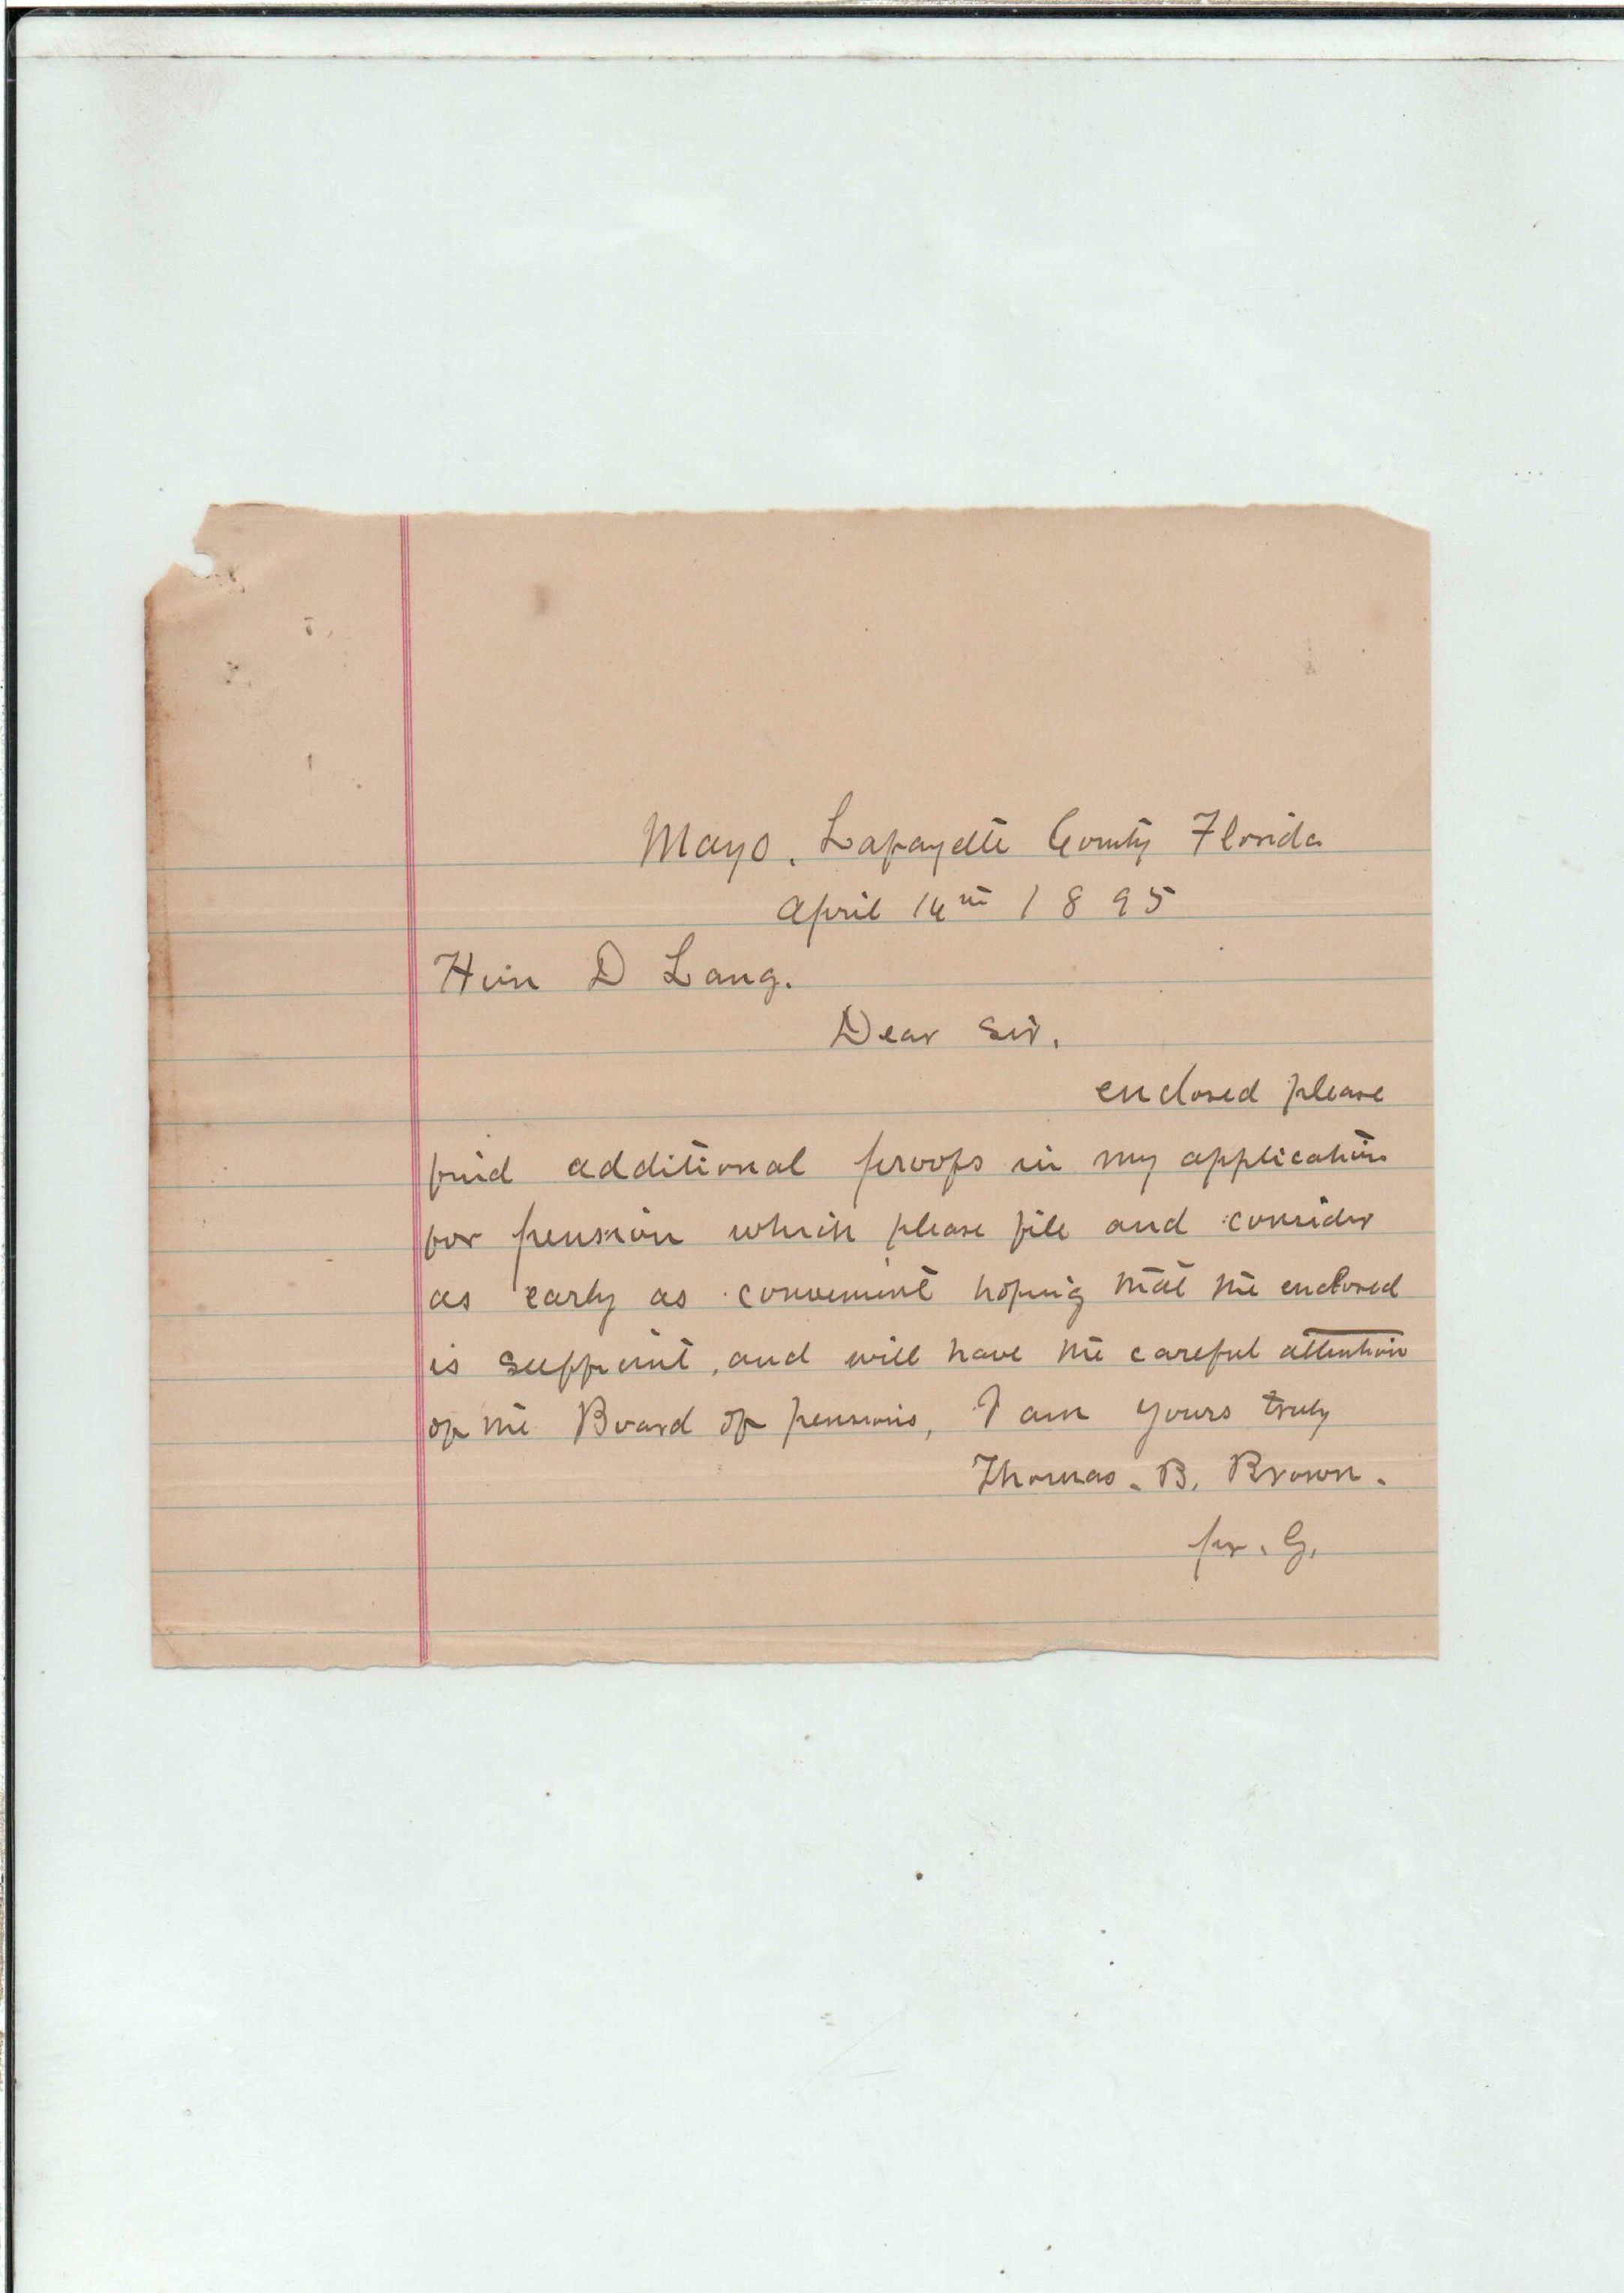 Mayo, Lafayette County Florida
April 14th 1895
Hon D Lang.
Dear Sir,
enclosed please
find additional proofs in my application
for pension which please file and consider
as early as convenient hoping that the enclosed
is sufficient, and will have the careful attention
of the Board of pensions, I am yours truly
Thomas. B. Brown.
per. G.